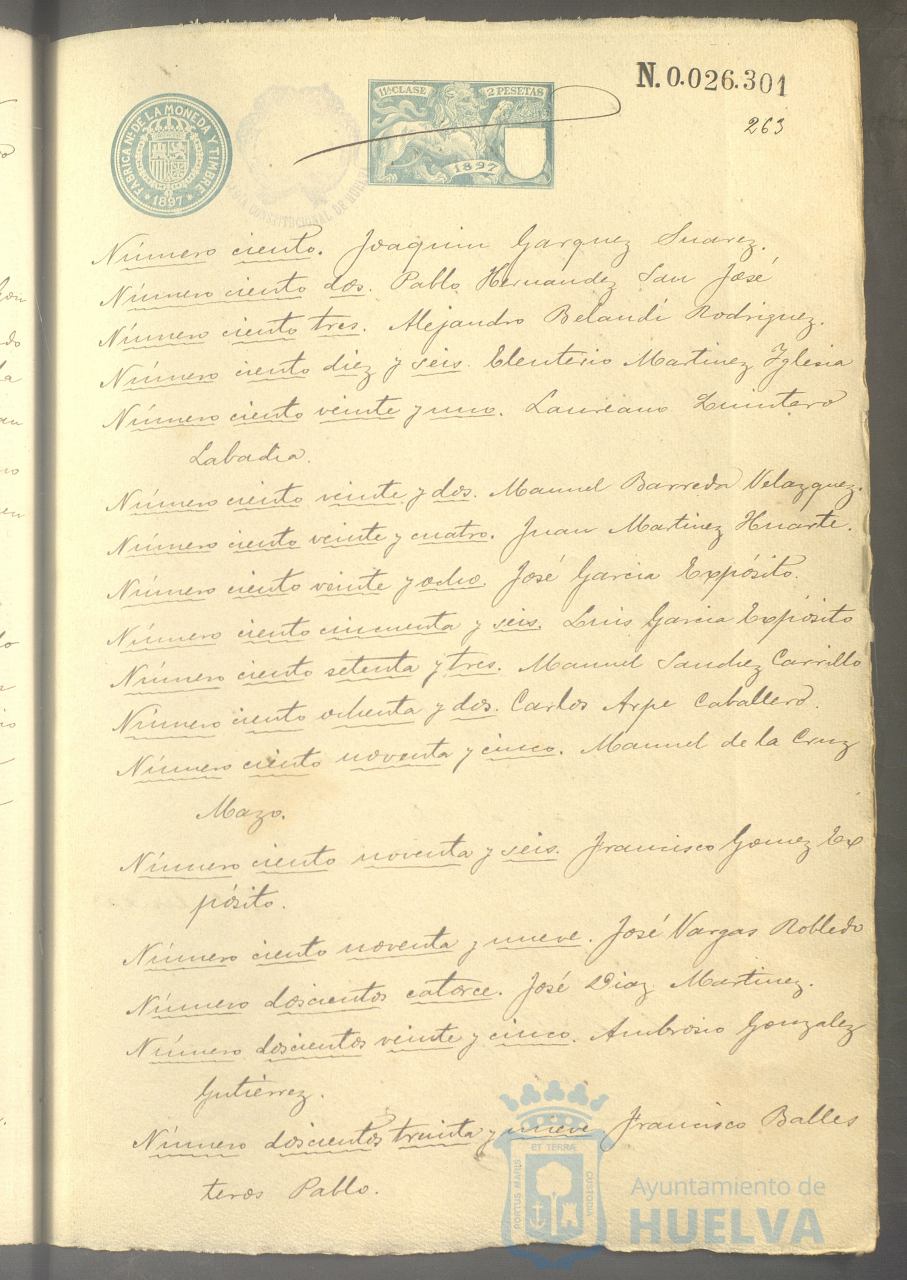 N. 0.026.301
263
FABRICA Nal. DE LA MONEDA Y TIMBRE
1897
CONSTITUCIONAL DE HUELVA
11ª CLASE 2 PESETAS
1897
Número ciento. Joaquin Garquez Suarez.
Número ciento dos. Pablo Hernandez San José
Número ciento tres. Alejandro Belandi Rodriguez.
Número ciento diez y seis. Eleuterio Martinez Yglesia
Número ciento veinte y uno. Laureano Quintero
Labadia.
Número ciento veinte y dos. Manuel Barreda Velazquez.
Número ciento veinte y cuatro. Juan Martinez Huarte.
Número ciento veinte y ocho. José Garcia Expósito.
Número ciento cincuenta y seis. Luis Garcia Expósito
Número ciento setenta y tres. Manuel Sanchez Carrillo
Número ciento ochenta y dos. Carlos Arpe Caballero.
Número ciento noventa y cinco. Manuel de la Cruz
Mazo.
Número ciento noventa y seis. Francisco Gomez Ex
pósito.
Número ciento noventa y nueve. José Vargas Robledo
Número doscientos catorce. José Diaz Martinez.
Número doscientos veinte y cinco. Ambrosio Gonzalez
Gutiérrez.
Número doscientos treinta y nueve Francisco Balles
teros Pablo.
PORTUS MARIS ET TERRÆ CUSTODIA
Ayuntamiento de
HUELVA